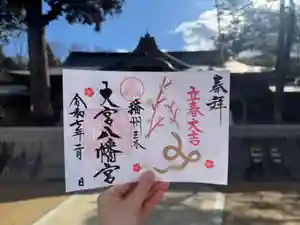 奉拝
立春大吉
播州三木
大宮八幡宮
令和七年二月 日